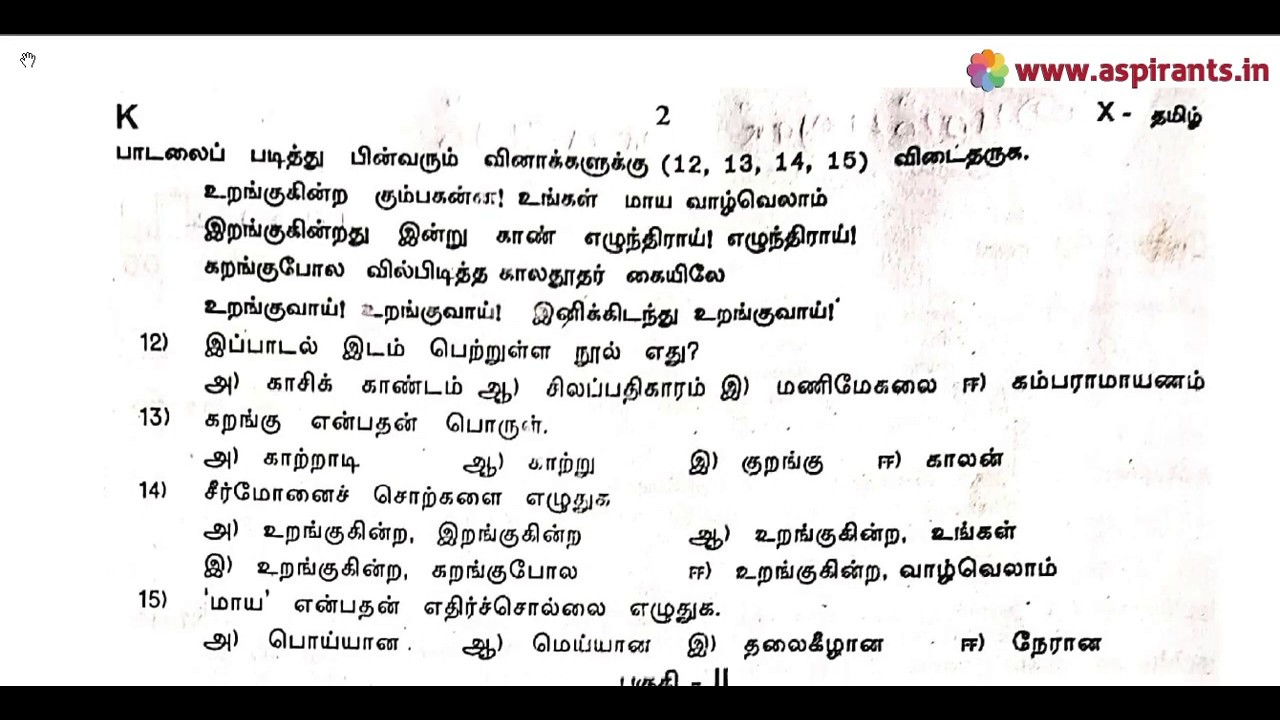 www.aspirants.in
K 2 X - தமிழ்
பாடலைப் படித்து பின்வரும் வினாக்களுக்கு (12, 13, 14, 15) விடைதருக.
உறங்குகின்ற கும்பகன்ன! உங்கள் மாய வாழ்வெலாம்
இறங்குகின்றது இன்று காண் எழுந்திராய்! எழுந்திராய்!
கறங்குபோல வில்பிடித்த காலதூதர் கையிலே
உறங்குவாய்! உறங்குவாய்! இனிக்கிடந்து உறங்குவாய்!
12) இப்பாடல் இடம் பெற்றுள்ள நூல் எது?
அ) காசிக் காண்டம் ஆ) சிலப்பதிகாரம் இ) மணிமேகலை ஈ) கம்பராமாயணம்
13) கறங்கு என்பதன் பொருள்.
அ) காற்றாடி ஆ) காற்று இ) குறங்கு ஈ) காலன்
14) சீர்மோனைச் சொற்களை எழுதுக
அ) உறங்குகின்ற, இறங்குகின்ற ஆ) உறங்குகின்ற, உங்கள்
இ) உறங்குகின்ற, கறங்குபோல ஈ) உறங்குகின்ற, வாழ்வெலாம்
15) 'மாய' என்பதன் எதிர்ச்சொல்லை எழுதுக.
அ) பொய்யான . ஆ) மெய்யான இ) தலைகீழான ஈ) நேரான
பகுதி - II